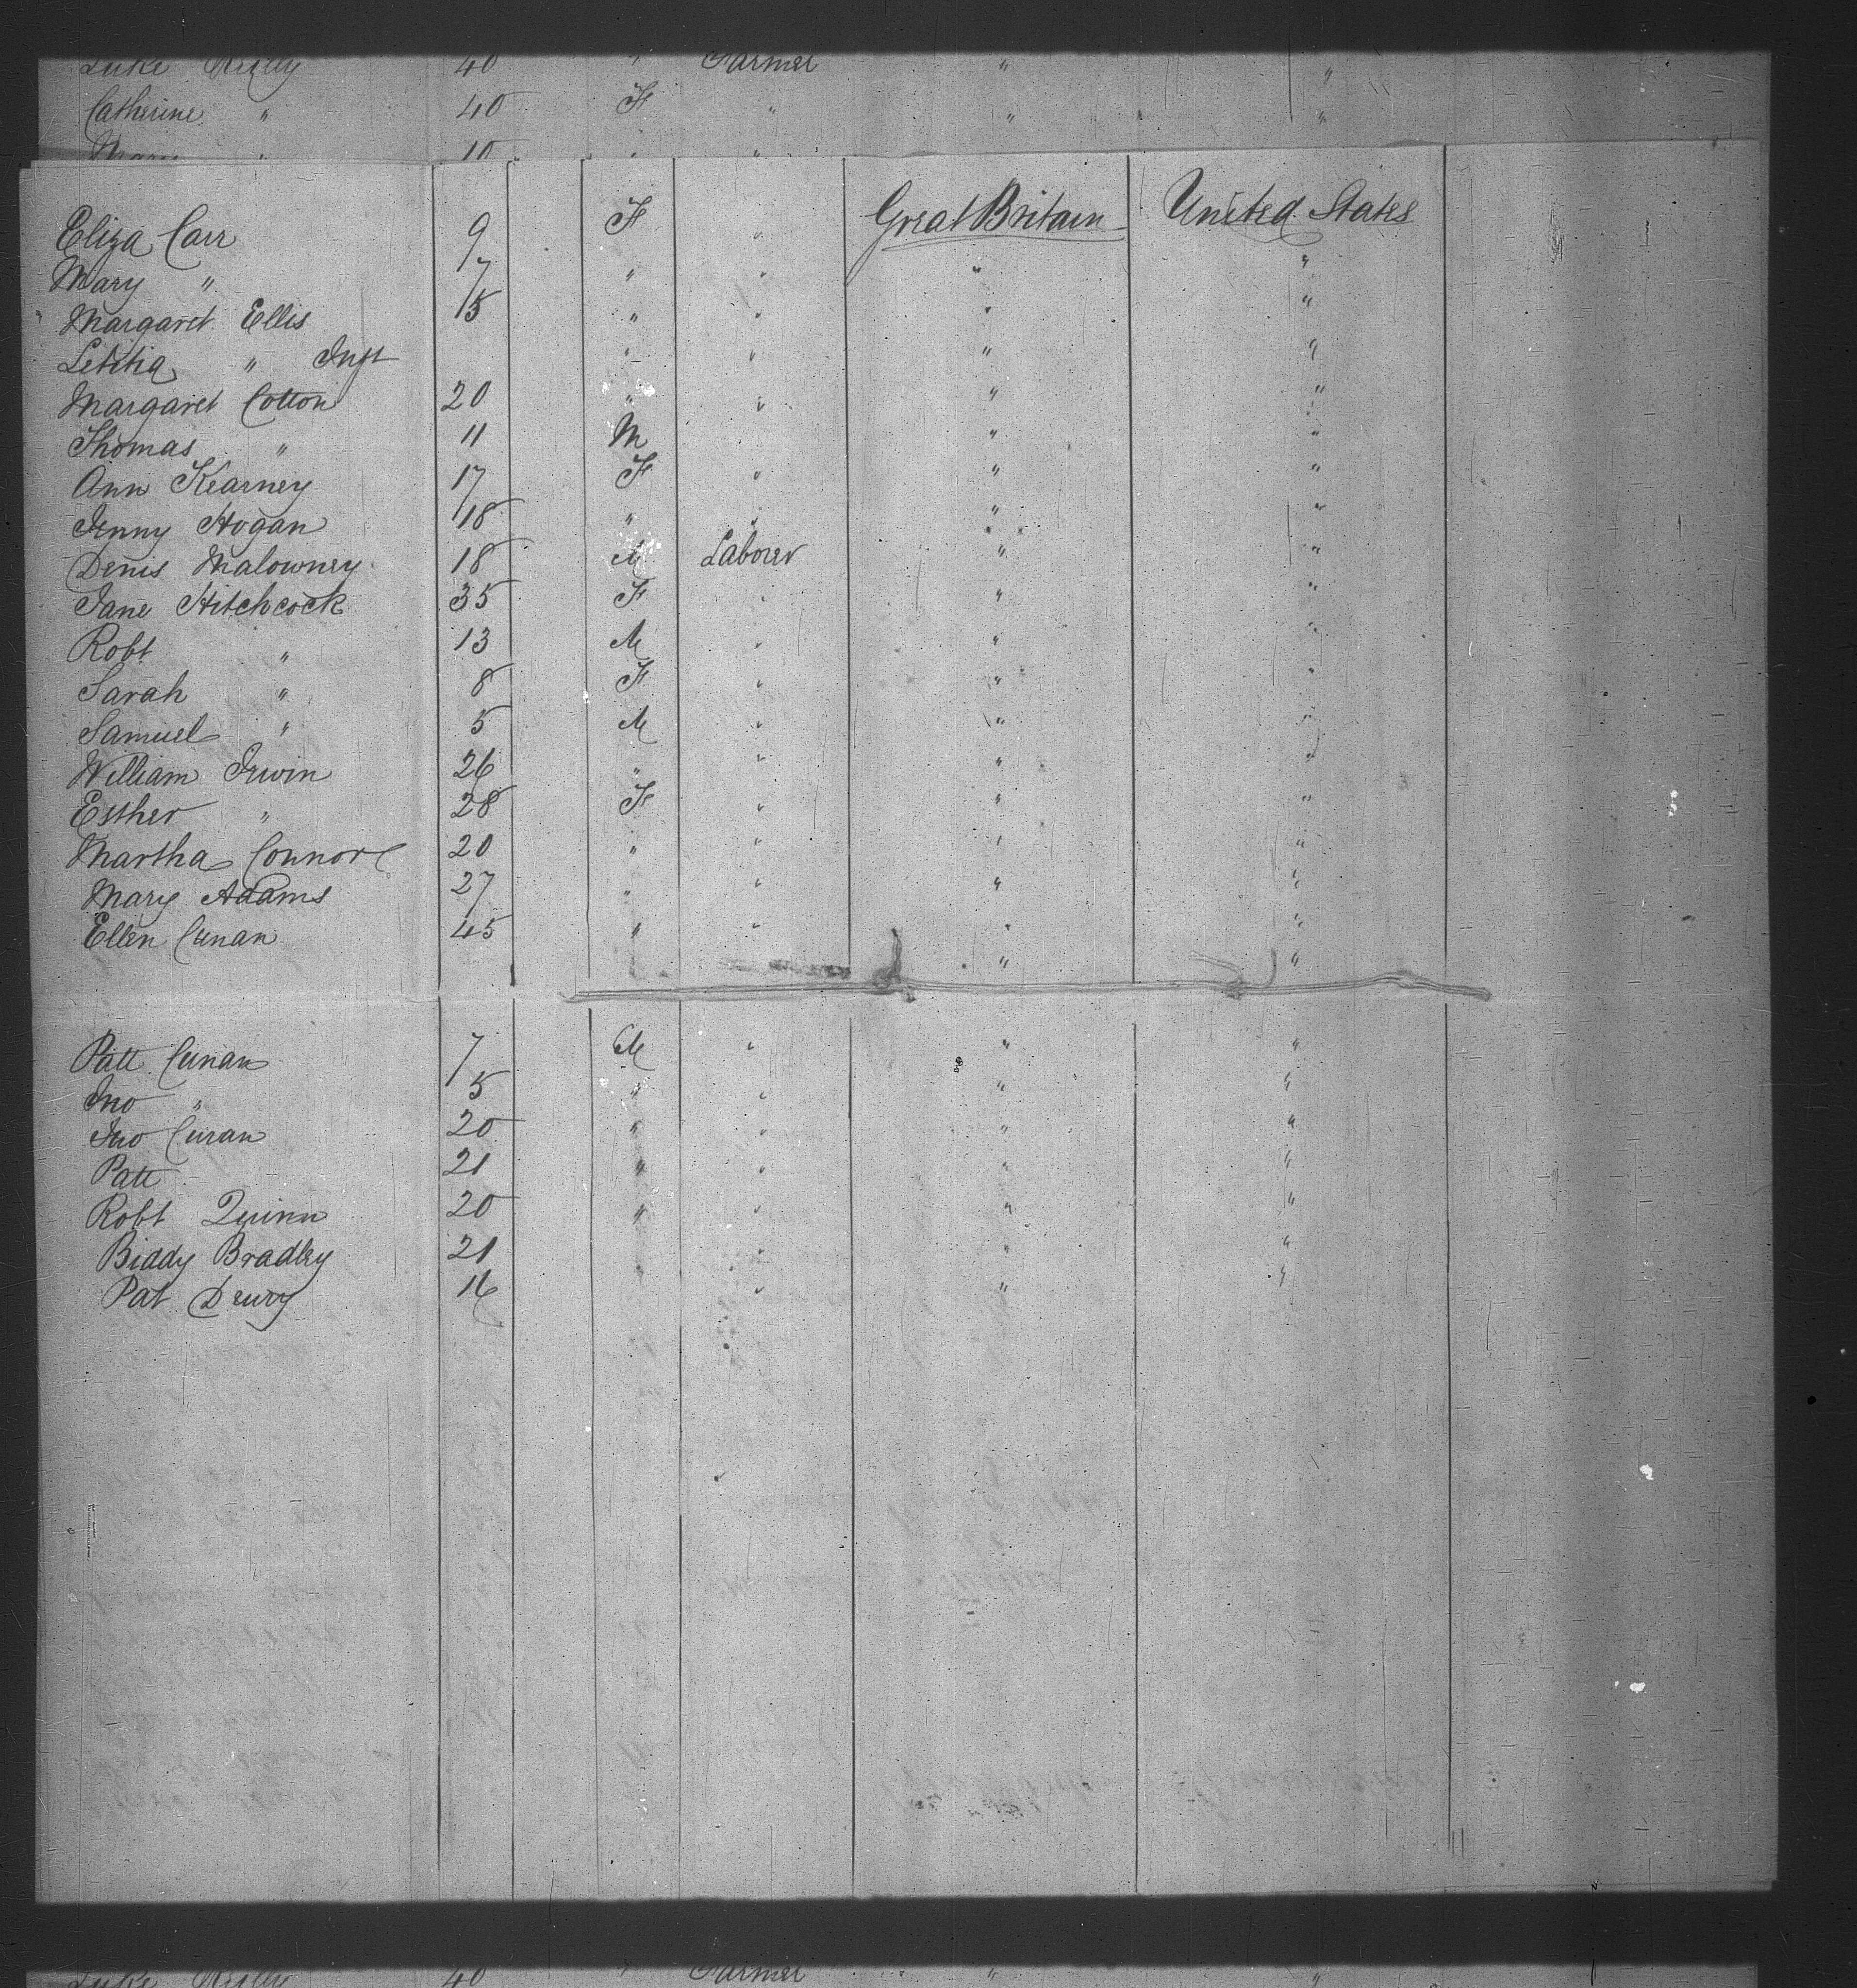 Luke Reilly 40 " Farmer " "
Catherine " 40 F " " "
Mary " 10 " "
Eliza Carr 9 F " Great Britain United States
Mary " 7 " " " "
Margaret Ellis 15 " " " "
Letitia " Inft " " " "
Margaret Cotton 20 " " " "
Thomas " 11 M " " "
Ann Kearney 17 F " " "
Jenny Hogan 18 " " " "
Denis Malowney 18 M Labourer " "
Jane Hitchcock 35 F " " "
Robt " 13 M " " "
Sarah " 8 F " " "
Samuel " 5 M " " "
William Irwin 26 " " " "
Esther " 28 F " " "
Martha Connor 20 " " " "
Mary Adams 27 " " " "
Ellen Cunan 45 " " " "
" "
Patt Cunan 7 M " " "
Jno " 5 " " " "
Jno Curan 20 " " " "
Patt 21 " " " "
Robt Quinn 20 " " " "
Biddy Bradley 21 " " "
Pat Drury 16 " " "
Luke Reilly 40 " Farmer " "